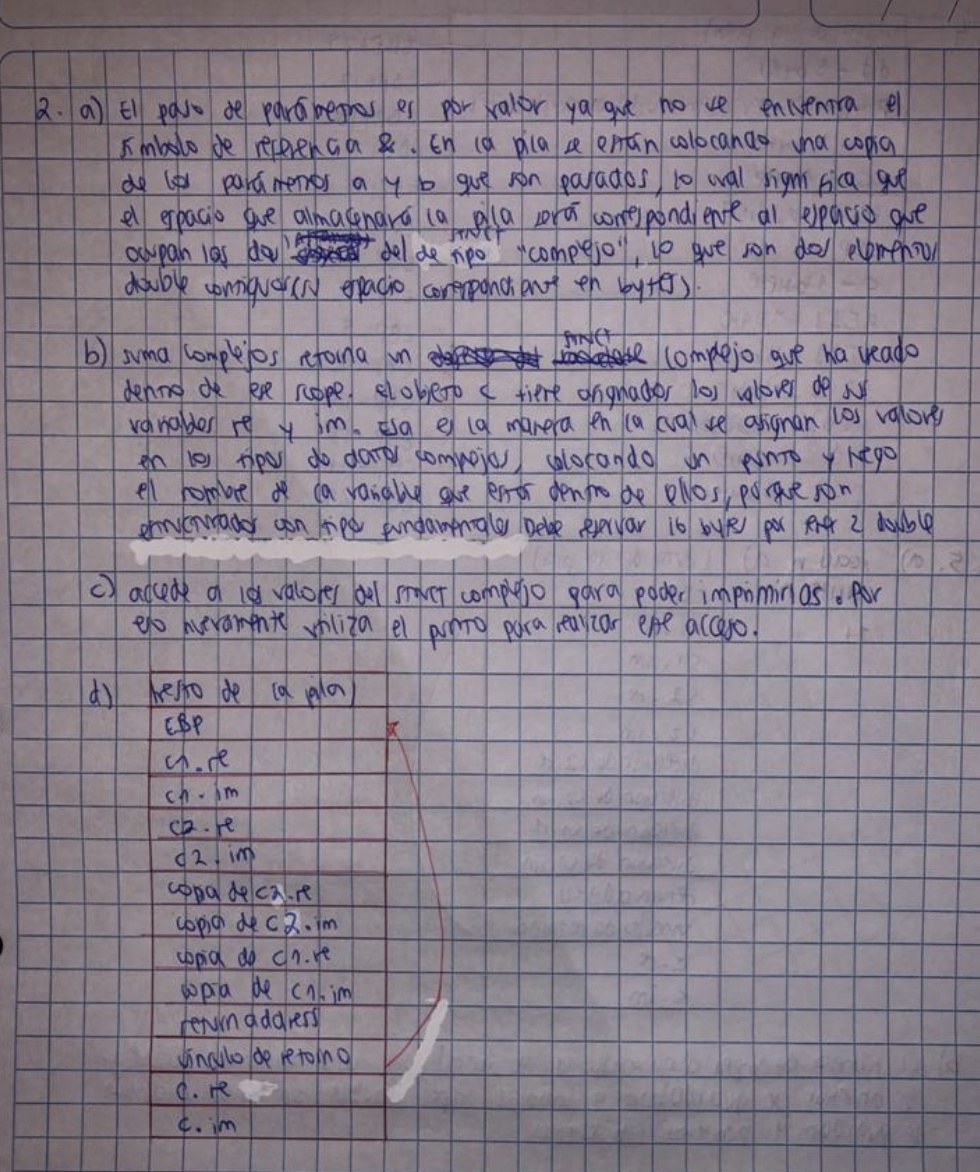 2. a) El paso de parámetros es por valor ya que no se encuentra el
símbolo de referencia &. En la pila se están colocando una copia
de los parámetros a y b que son pasados, lo cual significa que
el espacio que almacenará la pila será correspondiente al espacio que
ocupan los dos del de tipo struct "complejo", lo que son dos elementos
double contiguos (su espacio correspondiente en bytes).
b) suma complejos retorna un struct complejo que ha creado
dentro de ese scope. El objeto c tiene asignados los valores de sus
variables re y im. Esa es la manera en la cual se asignan los valores
en los tipos de datos complejos, colocando un punto y luego
el nombre de la variable que están dentro de ellos, porque son
estructurados con tipos fundamentales Debe reservar 16 bytes por 2 double
c) accede a los valores del struct complejo para poder imprimirlas. Por
eso nuevamente utiliza el punto para realizar este acceso.
d) resto de la pila
EBP
c1.re
c1.im
c2.re
c2.im
copia de c2.re
copia de c2.im
copia de c1.re
copia de c1.im
return address
vínculo de retorno
c.re
c.im